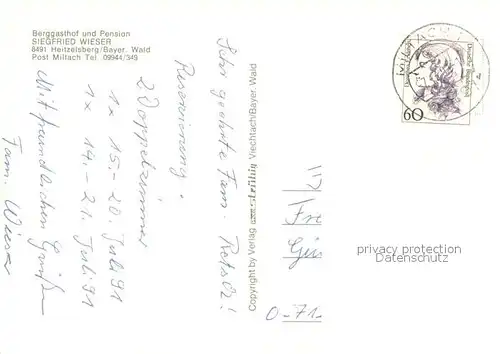 Berggasthof und Pension
SIEGFRIED WIESER
8491 Heitzelsberg/Bayer. Wald
Post Miltach Tel. 09944/349
Sehr geehrte Fam.
Reservierung.
2 Doppelzimmer
1 x 15.-20. Juli 91
1 x 14.-21. Juli 91
Mit freundlichen Grüßen
Fam. Wieser
Copyright by Verlag Viechtach/Bayer. Wald
MILTACH
Deutsche Bundespost
60
Fre
Gü
0-71
privacy protection
Datenschutz